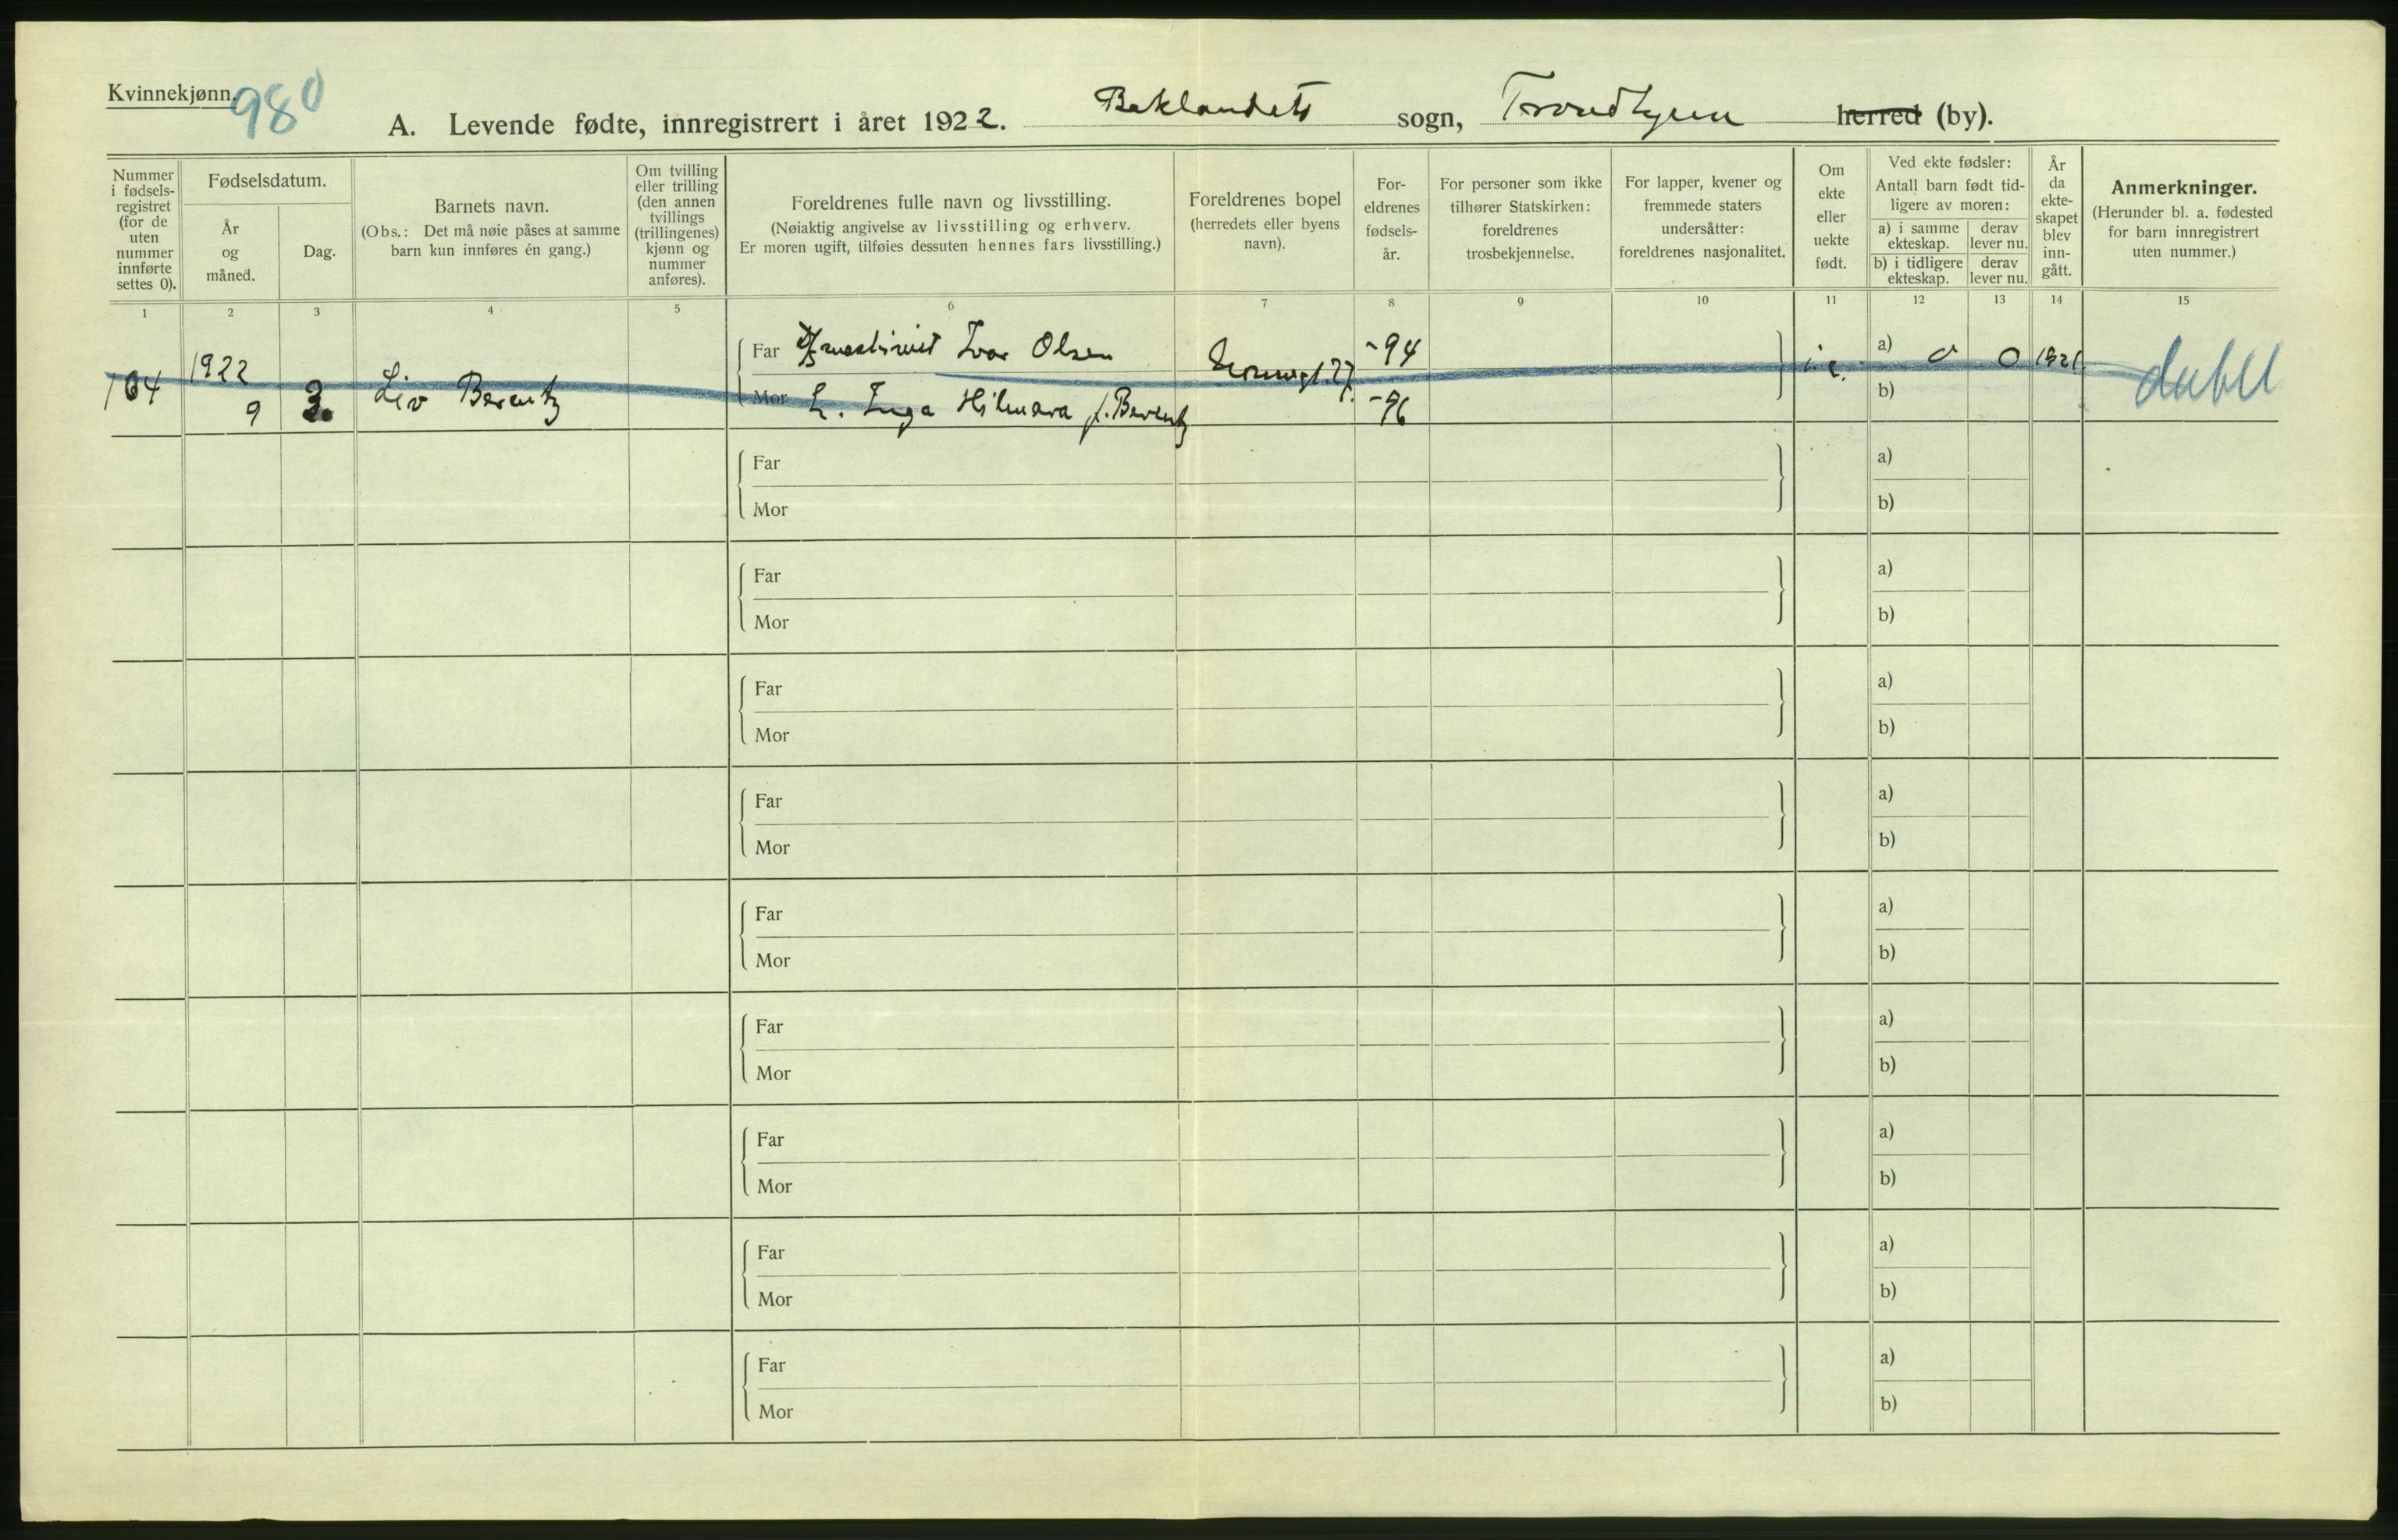 Kvinnekjønn.
980
A. Levende fødte, innregistrert i året 1922. Baklandets sogn, Trondhjem herred (by).
Nummer i fødsels-registret (for de uten nummer innførte settes 0).
Fødselsdatum.
År og måned.
Dag.
Barnets navn.
(Obs.: Det må nøie påses at samme barn kun innføres én gang.)
Om tvilling eller trilling (den annen tvillings (trillingenes) kjønn og nummer anføres).
Foreldrenes fulle navn og livsstilling.
(Nøiaktig angivelse av livsstilling og erhverv.
Er moren ugift, tilføies dessuten hennes fars livsstilling.)
Foreldrenes bopel
(herredets eller byens navn).
For-eldrenes fødsels-år.
For personer som ikke tilhører Statskirken: foreldrenes trosbekjennelse.
For lapper, kvener og fremmede staters undersåtter: foreldrenes nasjonalitet.
Om ekte eller uekte født.
Ved ekte fødsler:
Antall barn født tid-ligere av moren:
a) i samme ekteskap.
derav lever nu.
b) i tidligere ekteskap.
derav lever nu.
År da ekte-skapet blev inn-gått.
Anmerkninger.
(Herunder bl. a. fødested for barn innregistrert uten nummer.)
1 2 3 4 5 6 7 8 9 10 11 12 13 14 15
Far Ivar Olsen -94 a) 0 0 1921
104 1922 9 3. Liv Berentz 27. dubl
Mor Inga Hilmara f. Berentz -96 b)
Far a)
Mor b)
Far a)
Mor b)
Far a)
Mor b)
Far a)
Mor b)
Far a)
Mor b)
Far a)
Mor b)
Far a)
Mor b)
Far a)
Mor b)
Far a)
Mor b)